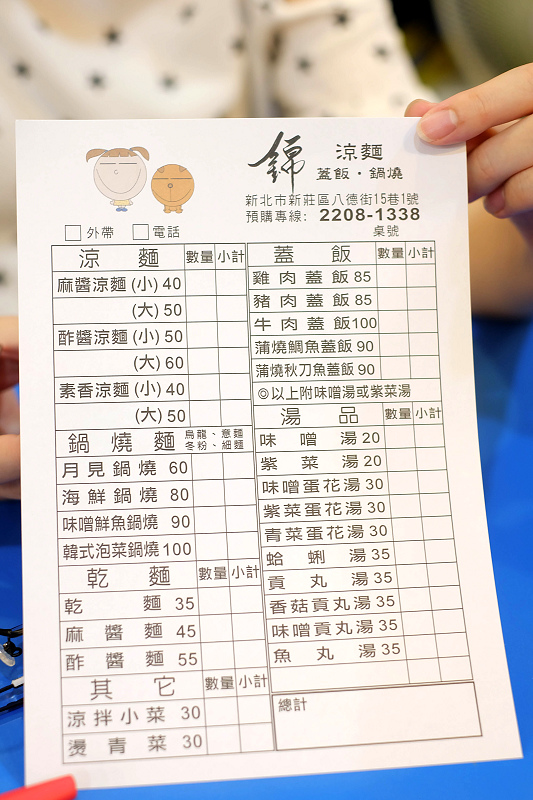 錦 涼麵
蓋飯・鍋燒
新北市新莊區八德街15巷1號
預購專線: 2208-1338
外帶 電話 桌號
涼麵 數量 小計
麻醬涼麵(小) 40
(大) 50
酢醬涼麵(小) 50
(大) 60
素香涼麵(小) 40
(大) 50
鍋燒麵 烏龍、意麵
冬粉、細麵
月見鍋燒 60
海鮮鍋燒 80
味噌鮮魚鍋燒 90
韓式泡菜鍋燒 100
乾麵 數量 小計
乾麵 35
麻醬麵 45
酢醬麵 55
其它 數量 小計
涼拌小菜 30
燙青菜 30
蓋飯 數量 小計
雞肉蓋飯 85
豬肉蓋飯 85
牛肉蓋飯 100
蒲燒鯛魚蓋飯 90
蒲燒秋刀魚蓋飯 90
◎以上附味噌湯或紫菜湯
湯品 數量 小計
味噌湯 20
紫菜湯 20
味噌蛋花湯 30
紫菜蛋花湯 30
青菜蛋花湯 30
蛤蜊湯 35
貢丸湯 35
香菇貢丸湯 35
味噌貢丸湯 35
魚丸湯 35
總計